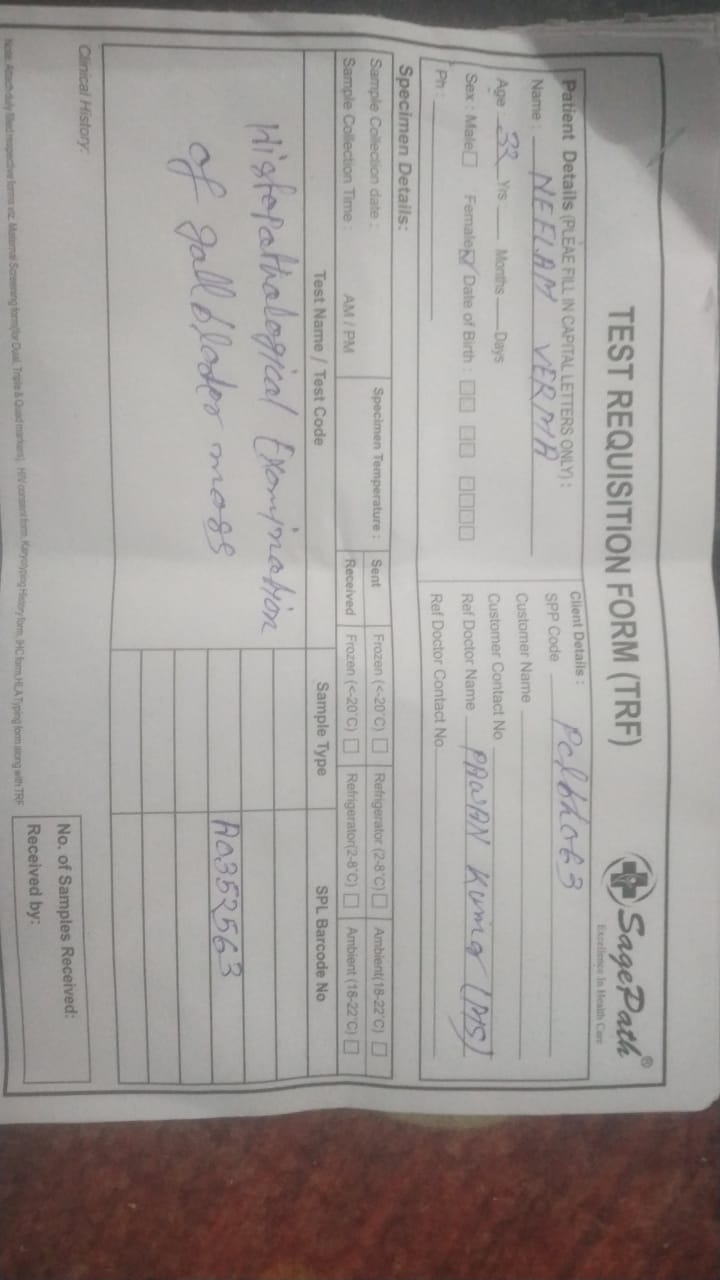 TEST REQUISITION FORM (TRF)
SagePath®
Excellence In Health Care
Patient Details (PLEAE FILL IN CAPITAL LETTERS ONLY) :
Name : NEELAM VERMA
Age : 32 Yrs : Months Days
Sex : Male Female Date of Birth :
Ph :
Client Details :
SPP Code
Customer Name
Customer Contact No
Ref Doctor Name PAWAN Kumar (MS)
Ref Doctor Contact No
Specimen Details:
Sample Collection date : Specimen Temperature : Sent Frozen (<-20°C) Refrigerator (2-8°C) Ambient(18-22°C)
Sample Collection Time : AM / PM Received Frozen (<-20°C) Refrigerator(2-8°C) Ambient (18-22°C)
Test Name / Test Code Sample Type SPL Barcode No
Histopathological Examination
of gall blader mass A0352563
Clinical History:
No. of Samples Received:
Received by:
Note: Attach duly filled respective forms viz. Maternal Screening form(for Dual, Triple & Quad markers), HIV consent form, Karyotyping History form, IHC form, HLA Typing form along with TRF